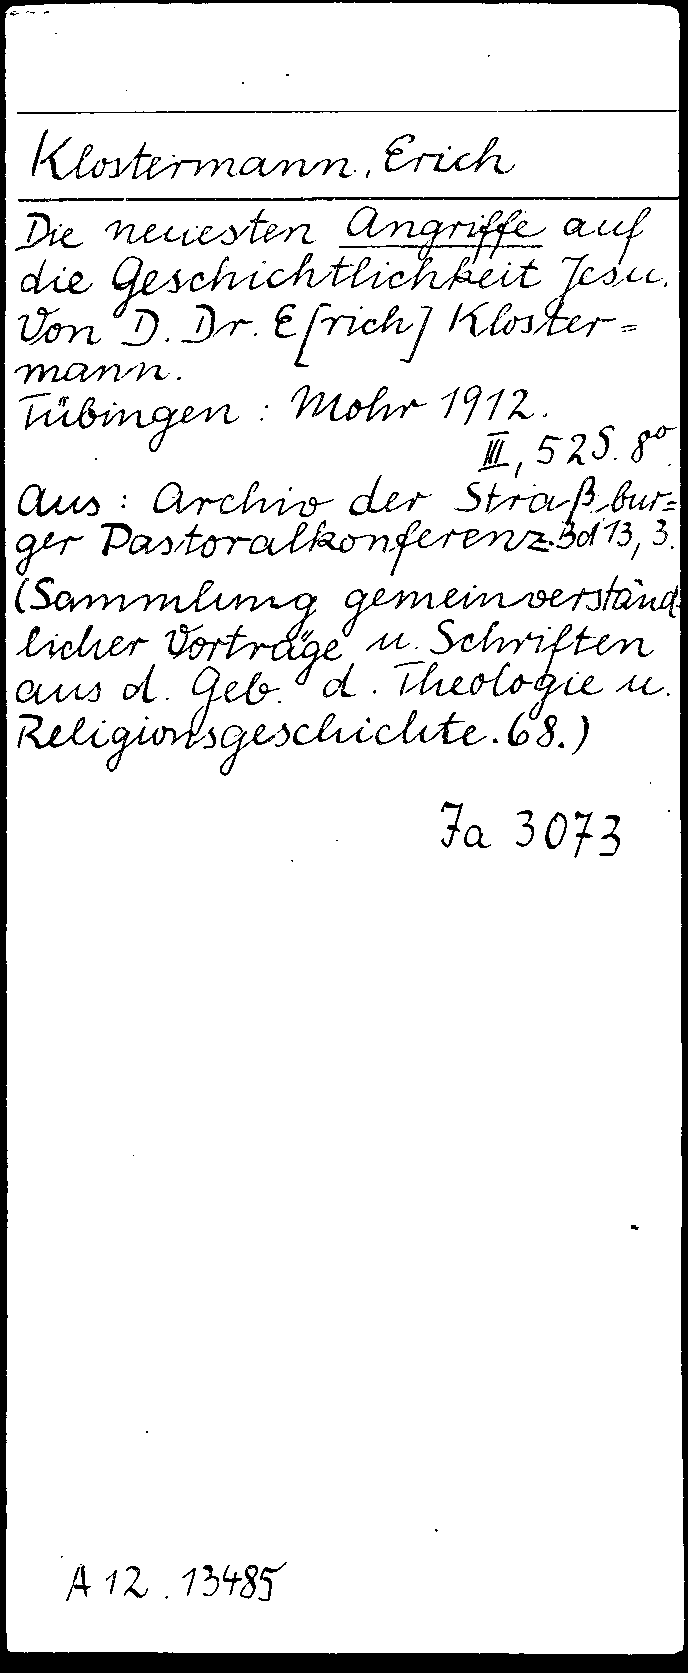 Klostermann, Erich
Die neuesten Angriffe auf
die Geschichtlichkeit Jesu.
Von D. Dr. E[rich] Kloster=
mann.
Tübingen: Mohr 1912.
III, 52 S. 8°.
Aus: Archiv der Straßbur=
ger Pastoralkonferenz. Bd 13, 3.
(Sammlung gemeinverständ=
licher Vorträge u. Schriften
aus d. Geb. d. Theologie u.
Religionsgeschichte. 68.)
Ja 3073
A 12. 13485